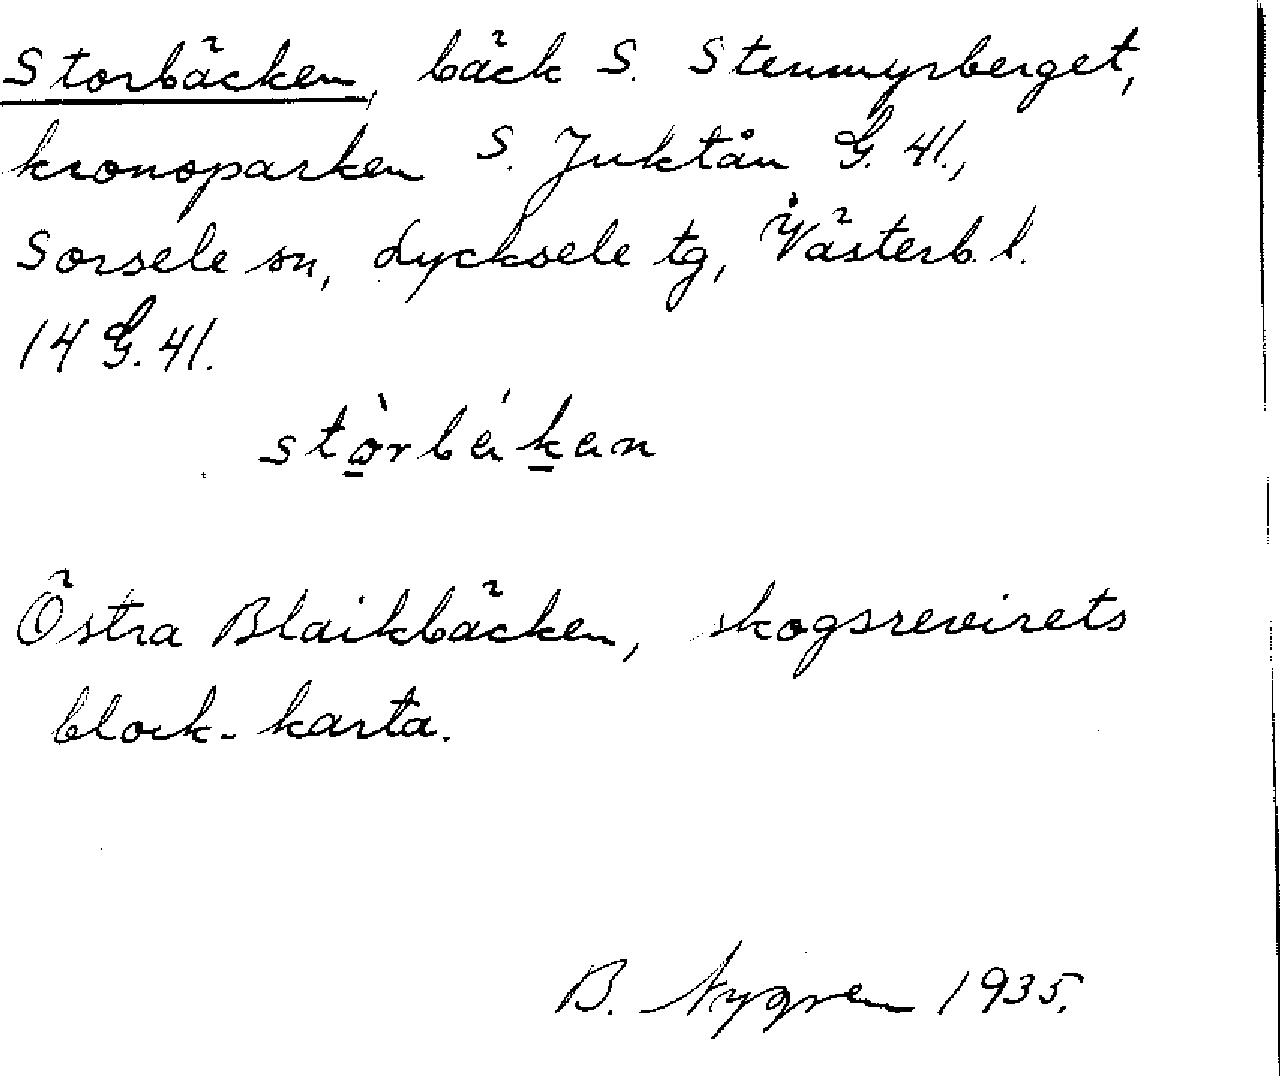 Storbäcken, bäck S. Stenmyrberget,
kronoparken S. Juktån G. 41.,
Sorsele sn, Lycksele tg, Västerb. l.
14 G. 41.
Östra Blaikbäcken, skogsrevirets
block-karta.
B. Nygren 1935.